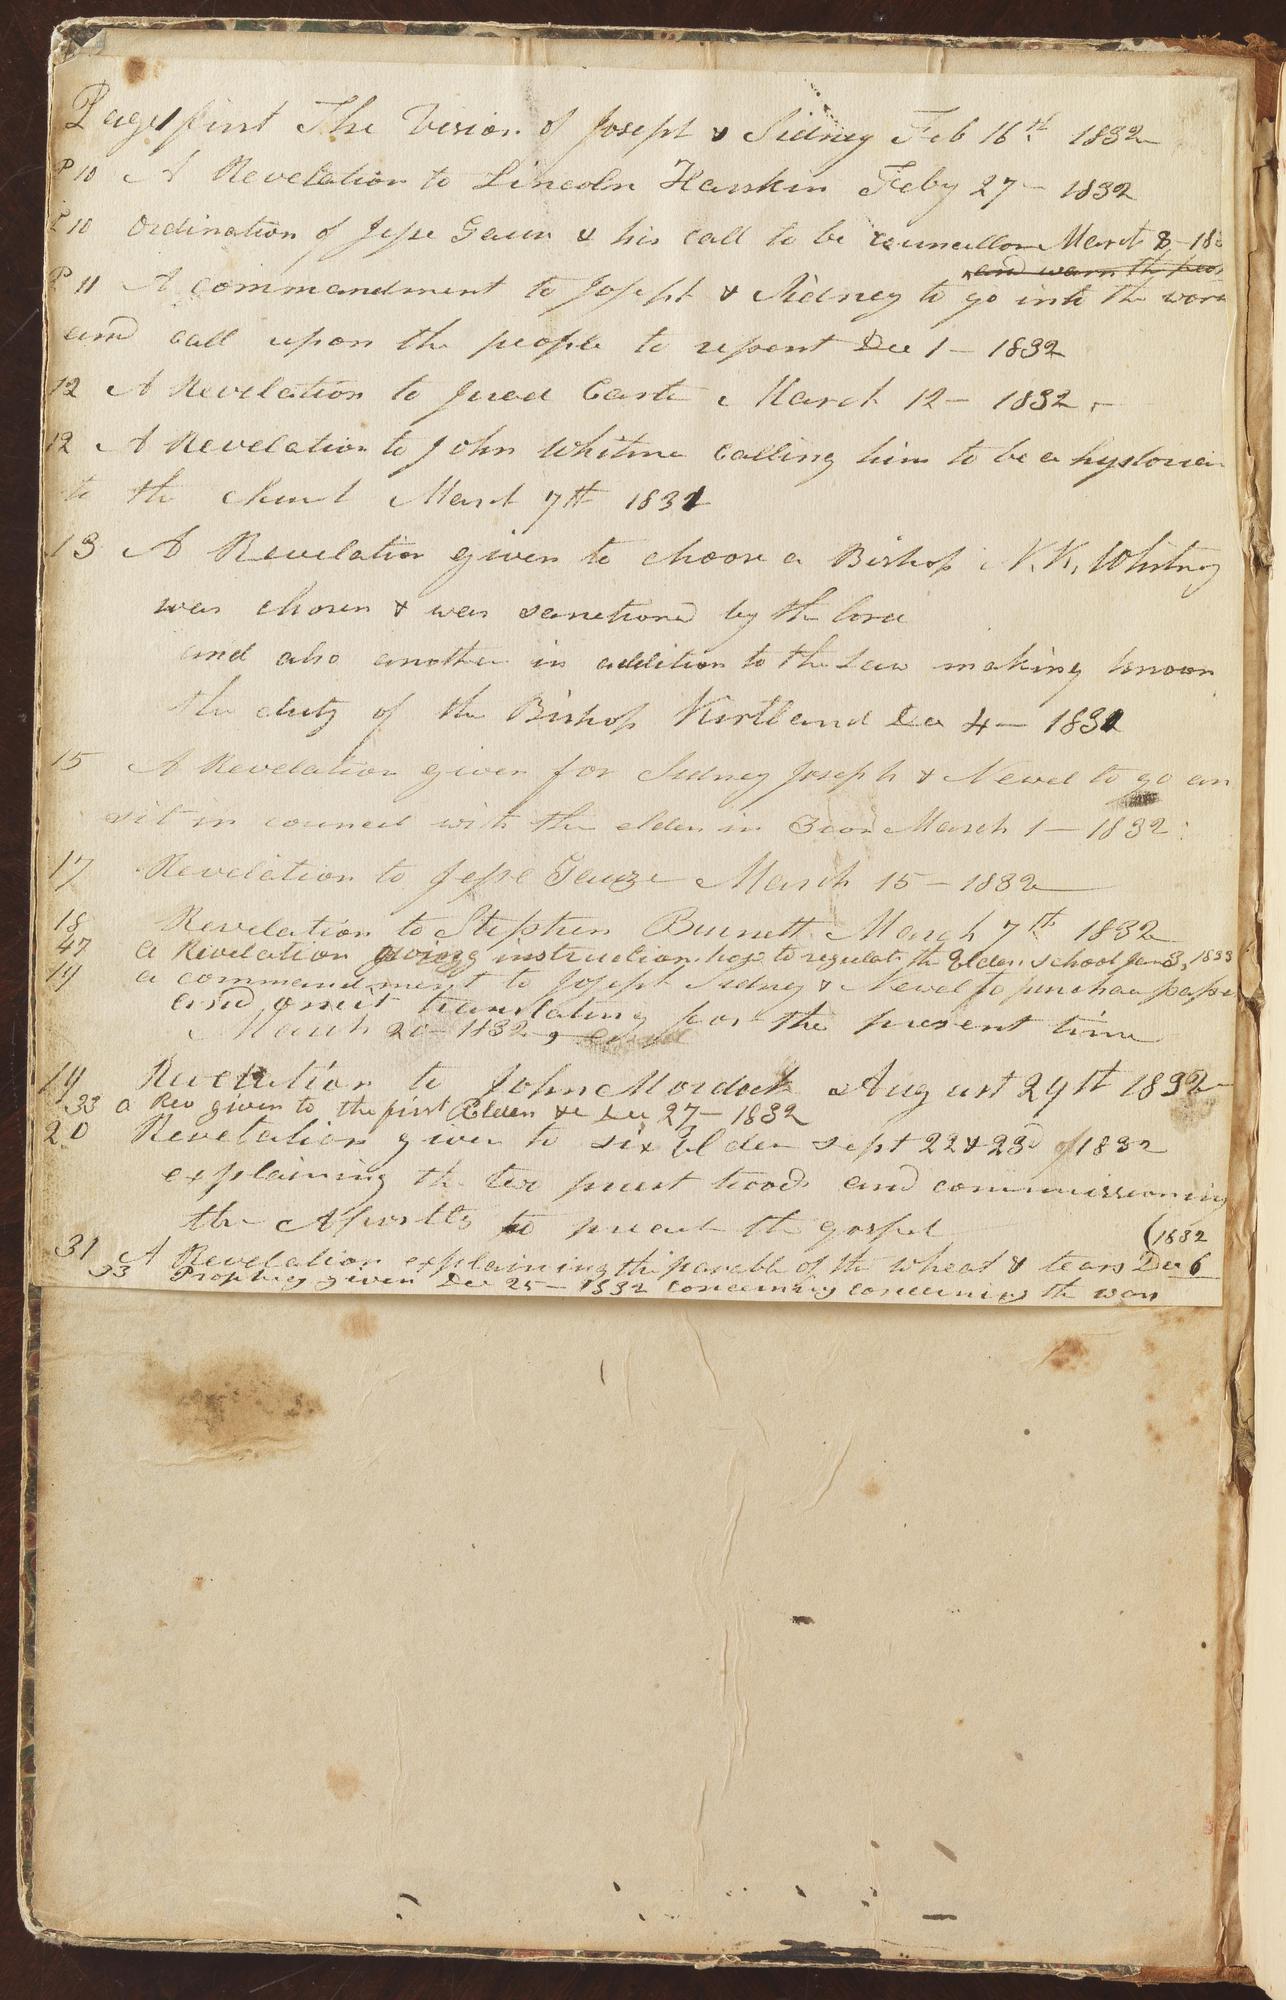 Page first The Vision of Joseph & Sidney Feb 16th 1832
P 10 A Revelation to Lincoln Haskin Feby 27 – 1832
P 10 Ordination of Jesse Gaus & his call to be councillor March 8 – 183
and warn the peop
P 11 A commandment to Joseph & Sidney to go into the worl
and call upon the people to repent Dec 1 – 1832
12 A Revelation to Jared Carte March 12 – 1832 –
12 A Revelation to John Whitme calling him to be a hystorian
to the church March 7th 1831
13 A Revelation given to choose a Bishop N. K. Whitney
was chosen & was sanctioned by the lord
and also another in addition to the Law making known
the duty of the Bishop Kirtland Dec 4 – 1831
15 A Revelation given for Sidney Joseph & Newel to go an
sit in council with the elders in Zion March 1 – 1832
17 Revelation to Jesse Gauze March 15 – 1832
18 Revelation to Stephen Burnett March 7th 1832
47 a Revelation giving instruction how to regulate the Elders school Jan 3, 1833
19 a commandment to Joseph Sidney & Newel to purchase paper
and omit translating for the present time
March 20 – 1832
19 Revelation to John Mordock August 29th 1832
33 a Rev given to the first Elders &c Dec 27 – 1832
20 Revelation given to six Elders Sept 22 & 23d of 1832
explaining the two priest hoods and commissioning
the Apostles to preach the gospel
(1832
31 A Revelation explaining the parable of the wheat & tears Dec 6
33 Prophecy given Dec 25 – 1832 concerning concerning the wars